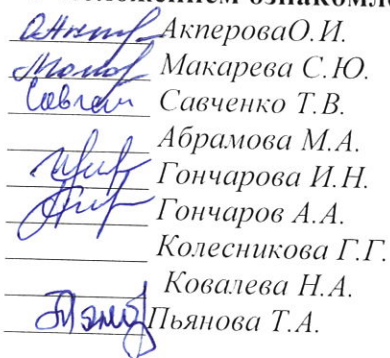 ознакомле
АкпероваО.И.
Макарева С.Ю.
Савченко Т.В.
Абрамова М.А.
Гончарова И.Н.
Гончаров А.А.
Колесникова Г.Г.
Ковалева Н.А.
Пьянова Т.А.